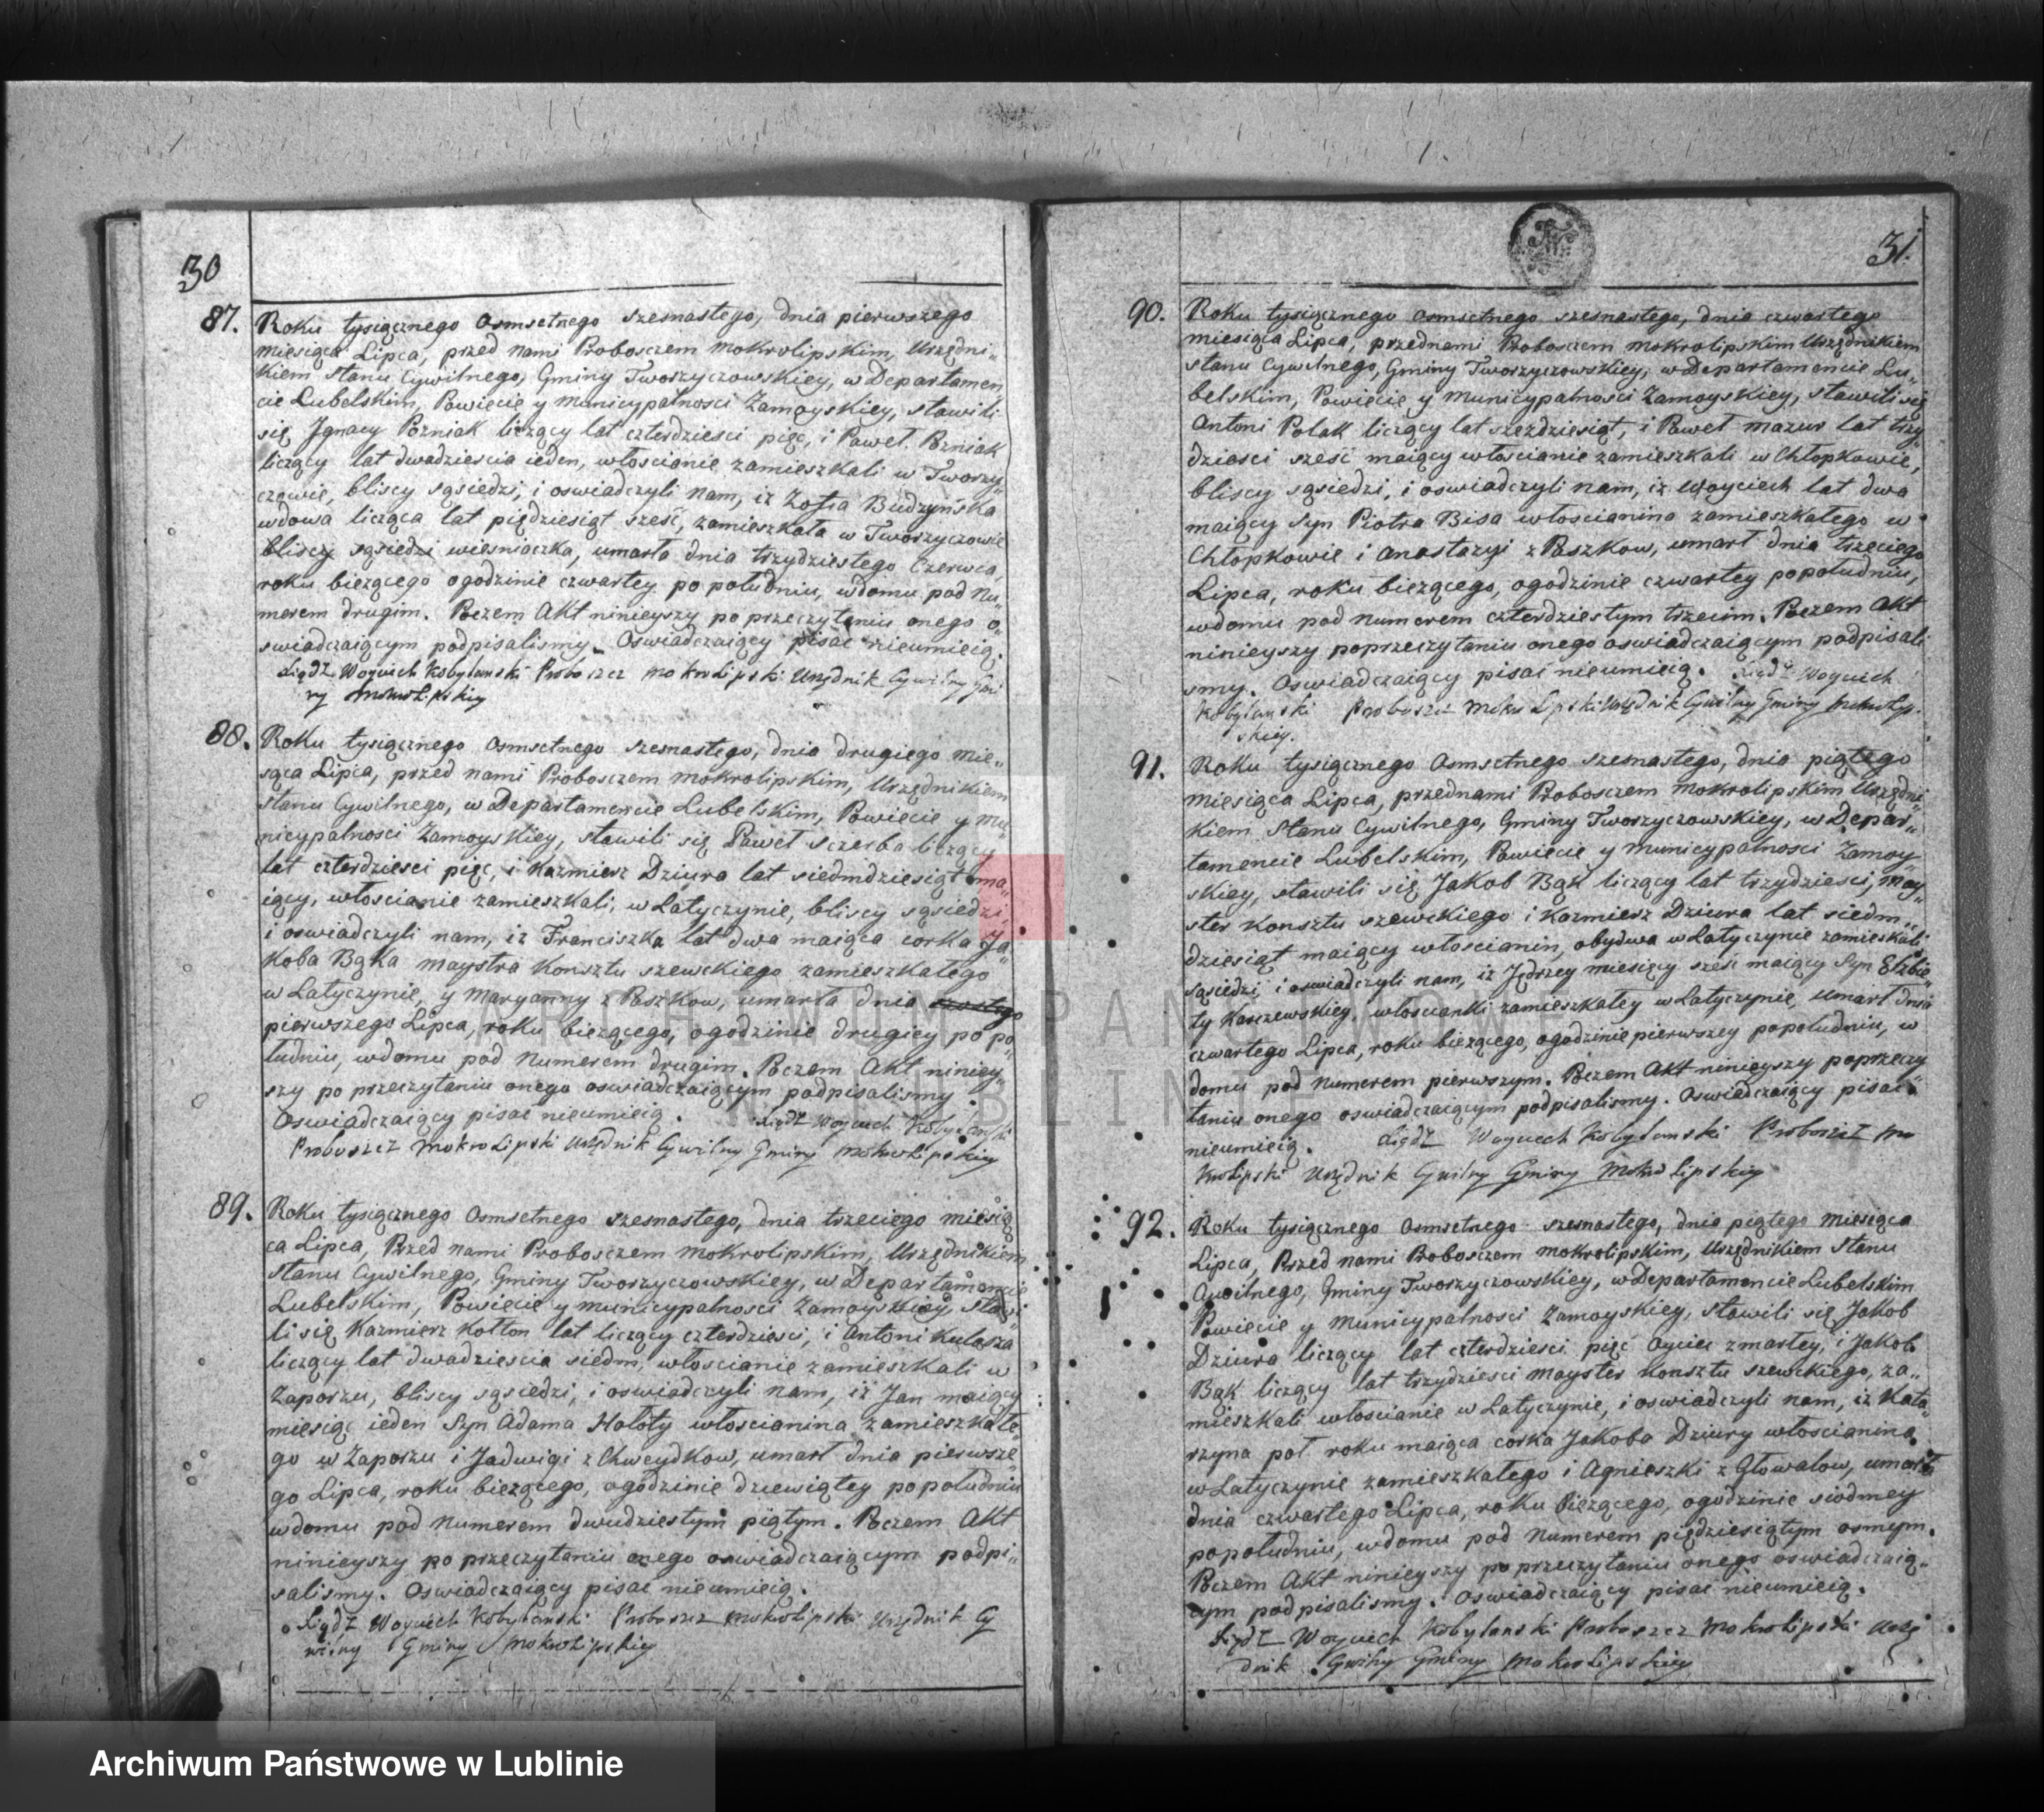 30
87. Roku tysiącznego osmsetnego szesnastego, dnia pierwszego
miesiąca Lipca, przed nami Proboszczem mokrolipskim, Urzędni„
kiem stanu Cywilnego, Gminy Tworzyczowskiey, w Departamen
cie Lubelskim, Powiecie y municypalnosci Zamoyskiey, stawili
się Jgnacy Pozniak liczący lat czterdziesci pięc, i Paweł Pozniak
liczący lat dwadziescia ieden, włoscianie zamieszkali w Tworzy„
czowie, bliscy sąsiedzi, i oswiadczyli nam, iz Zofia Budzyńska
wdowa licząca lat piędziesiąt szesć, zamieszkała w Tworzyczowie
bliscy sąsiedzi wiesniaczka, umarła dnia trzydziestego Czerwca,
roku bieżącego ogodzinie czwartey po południu, wdomu pod Nu„
merem drugim. Poczem Akt ninieyszy po przeczytaniu onego o„
swiadczaiącym podpisalismy. Oswiadczaiący pisac nieumieią.
Xiądz Woyciech Kobylanski Proboszcz mokrolipski Urzędnik Cywilny Gmi
ny Mokrolipskiey
88. Roku tysiącznego osmsetnego szesnastego, dnia drugiego mie„
sąca Lipca, przed nami Proboszczem mokrolipskim, Urzędnikiem
stanu Cywilnego, w Departamencie Lubelskim, Powiecie y mu
nicypalnosci Zamoyskiey, stawili się Paweł Sczerba liczący
lat czterdziesci pięc, i Kazmierz Dziura lat siedmdziesiąt ma„
iący, włoscianie zamieszkali, w Latyczynie, bliscy sąsiedzi,
i oswiadczyli nam, iz Franciszka lat dwa maiąca corka Ja„
koba Bąka maystra Konsztu szewckiego zamieszkałego
w Latyczynie, y Maryanny z Paszkow, umarła dnia
pierwszego Lipca, roku bieżącego, ogodzinie drugiey po po„
łudniu, wdomu pod Numerem drugim. Poczem Akt niniey„
szy po przeczytaniu onego oswiadczaiącym podpisalismy.
Oswiadczaiący pisac nieumieią. Xiądz Woyciech Kobylanski
Proboszcz MokroLipski Urzędnik Cywilny Gminy Mokrolipskiey
89. Roku tysiącznego osmsetnego szesnastego, dnia trzeciego miesią
ca Lipca, Przed nami Proboszczem mokrolipskim, Urzędnikiem
stanu Cywilnego, Gminy Tworzyczowskiey, w Departamencie
Lubelskim, Powiecie y municypalnosci Zamoyskiey, stawi
li się Kazmierz Kołton lat liczący czterdziesci, i Antoni Kulasza
liczący lat dwadziescia siedm, włoscianie zamieszkali w
Zaporzu, bliscy sąsiedzi, i oswiadczyli nam, iż Jan maiący
miesiąc ieden Syn Adama Hołoty włoscianina zamieszkałe„
go w Zaporzu i Jadwigi z Chweydkow, umarł dnia pierwsze„
go Lipca, roku bieżącego, ogodzinie dziewiątey popołudniu
wdomu pod Numerem dwudziestym piątym. Poczem Akt
ninieyszy po przeczytaniu onego oswiadczaiącym podpi„
salismy. Oswiadczaiący pisac nieumieią.
Xiądz Woyciech Kobylanski Proboszcz mokrolipski Urzędnik Cy
wilny Gminy Mokrolipskiey
31.
90. Roku tysiącznego osmsetnego szesnastego, dnia czwartego
miesiąca Lipca, przednami Proboszczem mokrolipskim Urzędnikiem
stanu Cywilnego, Gminy Tworzyczowskiey, w Departamencie Lu„
belskim, Powiecie y municypalnosci Zamoyskiey, stawili się
Antoni Polak liczący lat szezdziesiąt, i Paweł mazur lat trzy„
dziesci szesć maiący włoscianie zamieszkali w Chłopkowie,
bliscy sąsiedzi, i oswiadczyli nam, iz Woyciech lat dwa
maiący Syn Piotra Bisa włoscianina zamieszkałego w
Chłopkowie i Anastazyi z Paszkow, umarł dnia trzeciego
Lipca, roku bieżącego, ogodzinie czwartey popołudniu,
wdomu pod Numerem czterdziestym trzecim. Poczem Akt
ninieyszy poprzeczytaniu onego oswiadczaiącym podpisali
smy. Oswiadczaiący pisac nieumieią. Xiądz Woyciech
Kobylanski Proboszcz MokroLipski Urzędnik Cywilny Gminy Mokrolip„
skiey.
91. Roku tysiącznego osmsetnego szesnastego, dnia piątego
miesiąca Lipca, przednami Proboszczem mokrolipskim Urzędni„
kiem Stanu Cywilnego, Gminy Tworzyczowskiey, w Depar„
tamencie Lubelskim, Powiecie y Municypalnosci Zamoy„
skiey, stawili się Jakob Bąk liczący lat trzydziesci, may„
ster Konsztu szewckiego i Kazmierz Dziura lat siedm„
dziesiąt maiący włoscianin, obydwa w Latyczynie zamieskali
sąsiedzi, i oswiadczyli nam, iz Jędrzey miesięcy szesć maiący Syn Elzbie„
ty Karczewskiey, włoscianki zamieszkałey w Latyczynie, umarł dnia
czwartego Lipca, roku bieżącego, ogodzinie pierwszey popołudniu, w
domu pod Numerem pierwszym. Poczem Akt ninieyszy poprzeczy
taniu onego oswiadczaiącym podpisalismy. Oswiadczaiący pisac
nieumieią. Xiądz Woyciech Kobylanski Proboszcz Mo
krolipski Urzędnik Cywilny Gminy Mokrolipskiey
92. Roku tysiącznego osmsetnego szesnastego, dnia piątego miesiąca
Lipca, Przed nami Proboszczem mokrolipskim, Urzędnikiem Stanu
Cywilnego, Gminy Tworzyczowskiey, w Departamencie Lubelskim
Powiecie y Municypalnosci Zamoyskiey, stawili się Jakob
Dziura liczący lat czterdziesci pięć oyciec zmarłey, i Jakob
Bąk liczący lat trzydziesci mayster Konsztu szewckiego, za„
mieszkali włoscianie w Latyczynie, i oswiadczyli nam, iz Kata„
rzyna poł roku maiąca corka Jakoba Dziury włoscianina
w Latyczynie zamieszkałego i Agnieszki z Głowalow, umarła
dnia czwartego Lipca, roku bieżącego, ogodzinie siodmey
popołudniu, wdomu pod Numerem pięćdziesiątym osmym.
Poczem Akt ninieyszy po przeczytaniu onego oswiadczaią„
cym podpisalismy. Oswiadczaiący pisac nieumieią.
Xiądz Woyciech Kobylanski Proboszcz Mokrolipski Urzę
dnik Cywilny Gminy Mokrolipskiey
ARCHIWUM PAŃSTWOWE
W LUBLINIE
Archiwum Państwowe w Lublinie